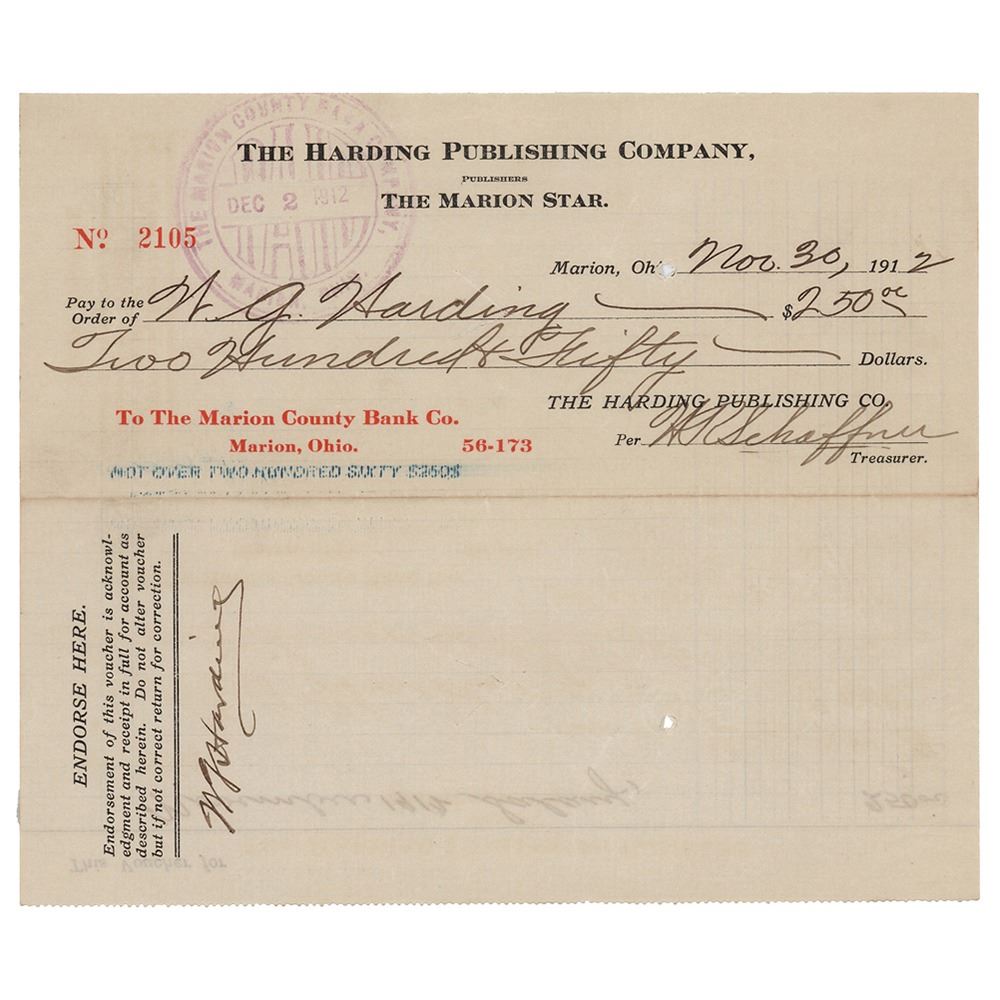 THE MARION COUNTY BANK COMPANY,
DEC 2 1912
MARION,
THE HARDING PUBLISHING COMPANY,
PUBLISHERS
THE MARION STAR.
No 2105
Marion, Oh Nov. 30, 1912
Pay to the Order of W. G. Harding $250 00
Two Hundred & Fifty Dollars.
THE HARDING PUBLISHING CO.
To The Marion County Bank Co.
Marion, Ohio. 56-173
Per H R Schaffner
Treasurer.
NOT OVER TWO HUNDRED SIXTY $260$
ENDORSE HERE.
Endorsement of this voucher is acknowl-
edgment and receipt in full for account as
described herein. Do not alter voucher
but if not correct return for correction.
W G Harding
This Voucher for
1912 Salary, 250 00